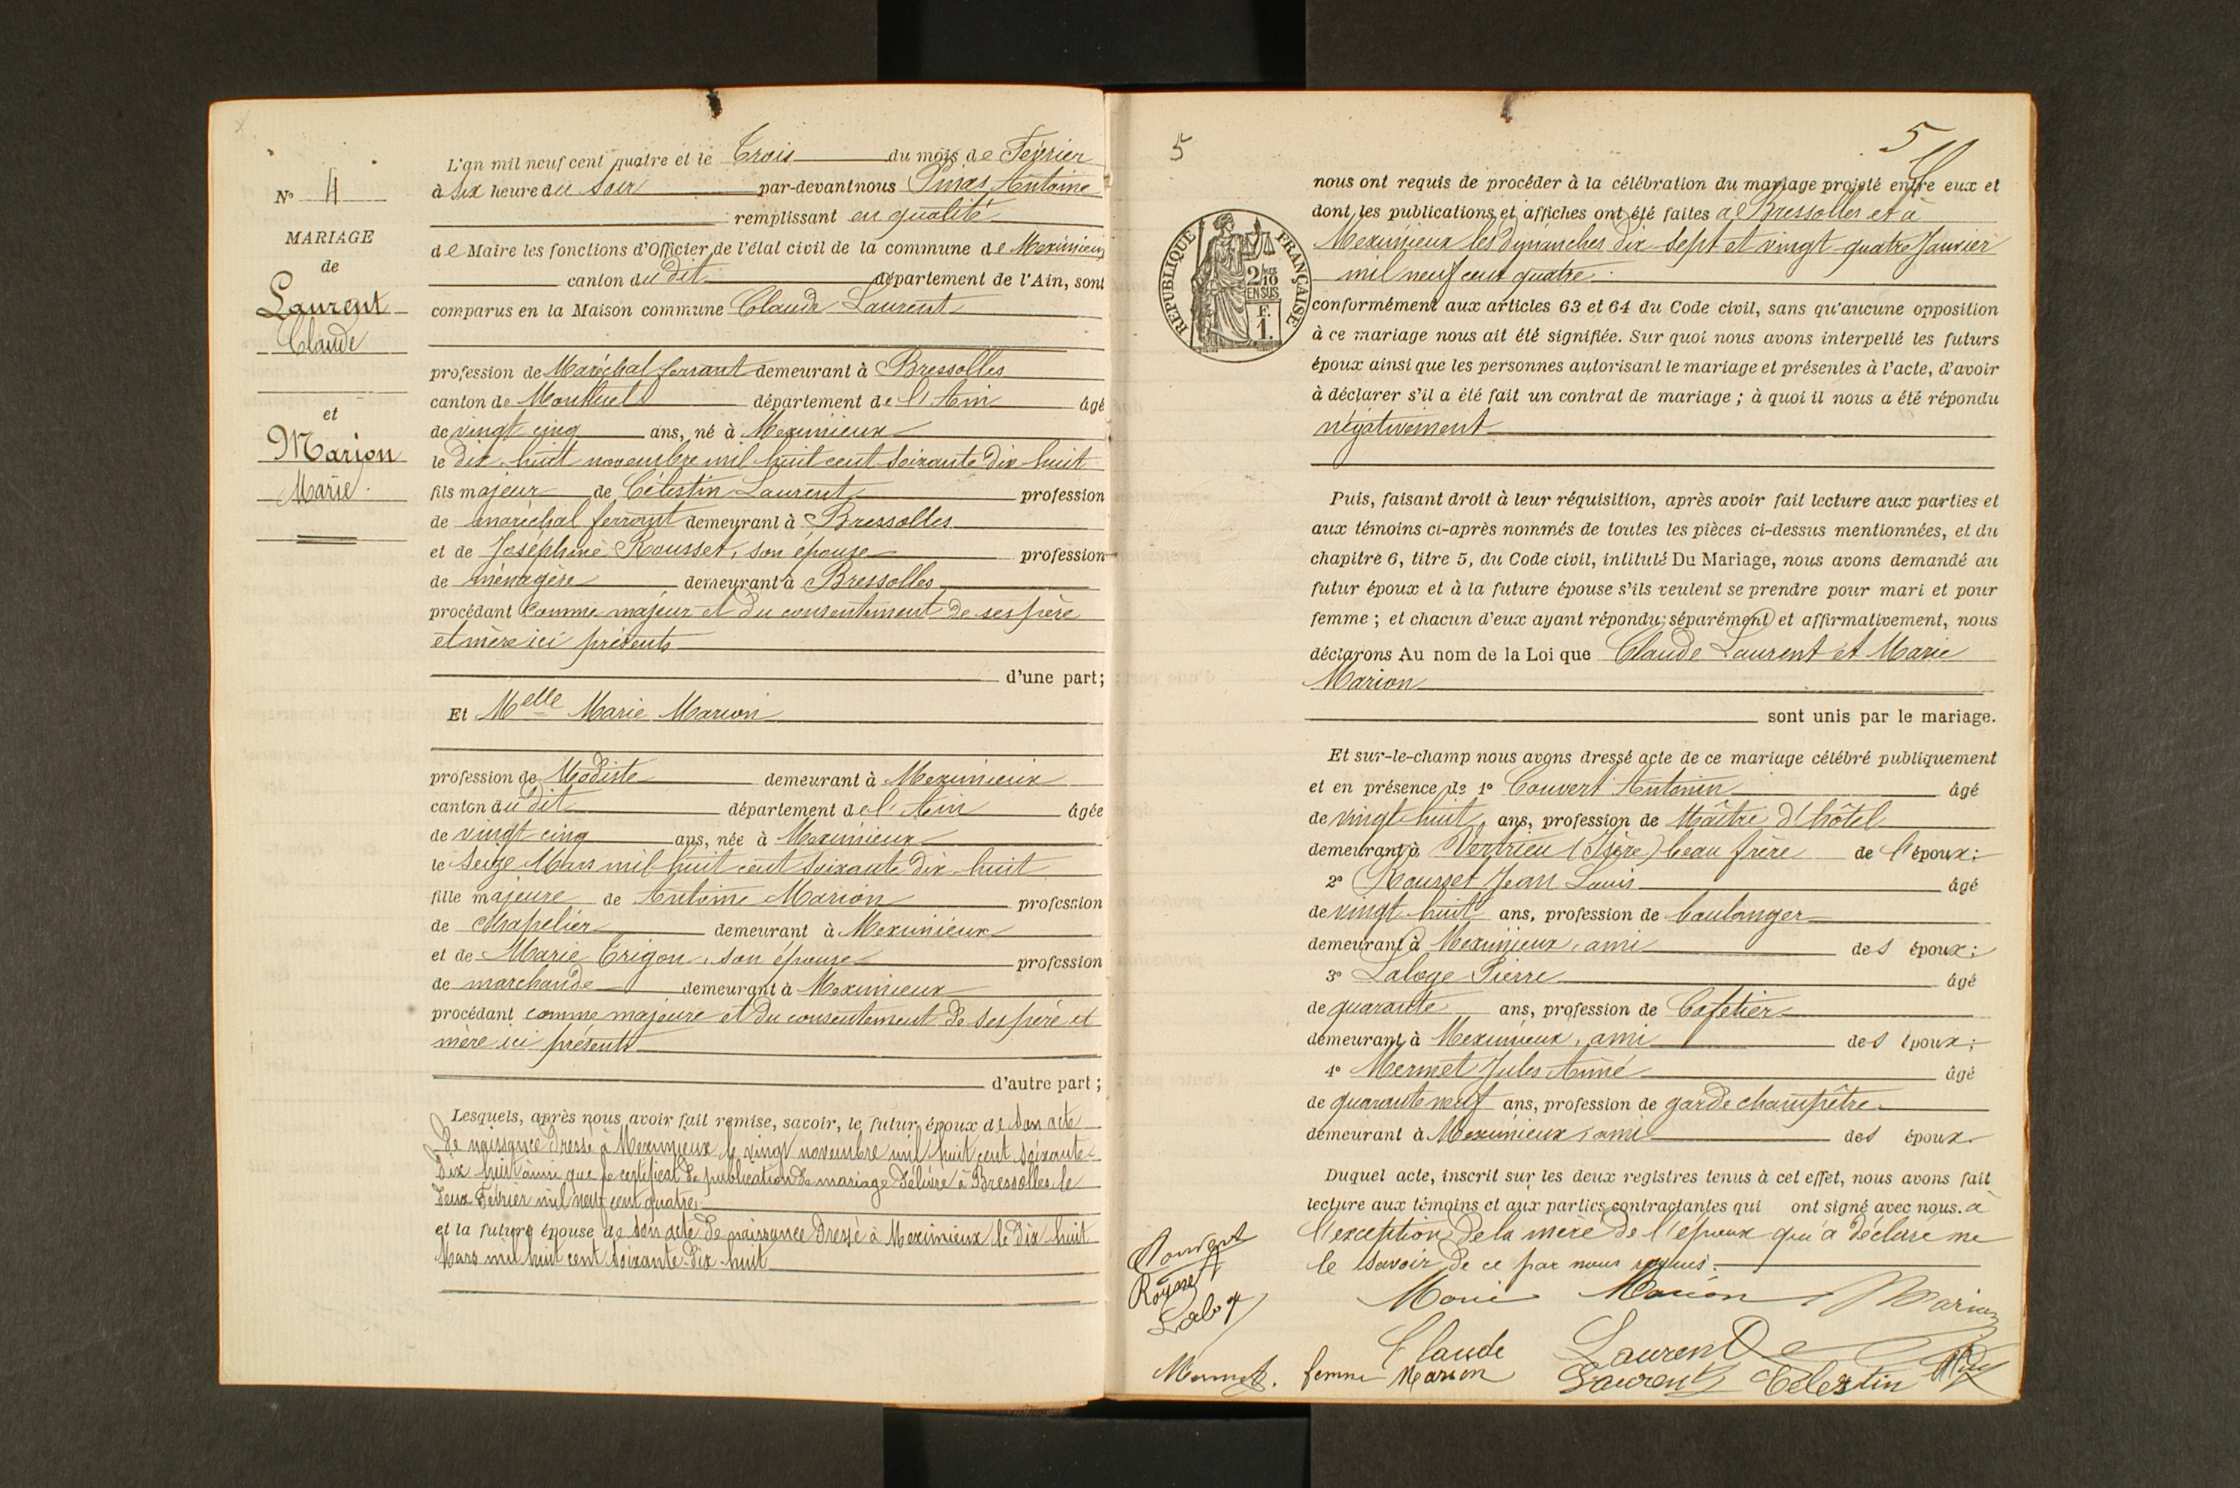 N° 4
MARIAGE
de
Laurent
Claude
et
Marion
Marie
L'an mil neuf cent quatre et le Trois du mois de Février
à six heure du soir par-devant nous Antoine
remplissant en qualité
de Maire les fonctions d'Officier de l'état civil de la commune de Meximieux
canton du dit département de l'Ain, sont
comparus en la Maison commune Claude Laurent
profession de Maréchal ferrant demeurant à Bressolles
canton de Montluel département de l'Ain âgé
de vingt cinq ans, né à Meximieux
le dix-huit novembre mil huit cent soixante dix huit
fils majeur de Célestin Laurent profession
de maréchal ferrant demeurant à Bressolles
et de Joséphine Rousset, son épouse profession
de ménagère demeurant à Bressolles
procédant comme majeur et du consentement de ses père
et mère ici présents
d'une part;
Et Melle Marie Marion
profession de Modiste demeurant à Meximieux
canton du dit département de l'Ain âgée
de vingt cinq ans, née à Meximieux
le seize Mars mil huit cent soixante dix-huit
fille majeure de Antoine Marion profession
de Chapelier demeurant à Meximieux
et de Marie Trigon, son épouse profession
de marchande demeurant à Meximieux
procédant comme majeure et du consentement de ses père et
mère ici présents
d'autre part;
Lesquels, après nous avoir fait remise, savoir, le futur époux de son acte
de naissance dressé à Meximieux le vingt novembre mil huit cent soixante-
dix huit ainsi que le certificat de publication de mariage délivré à Bressolles le
deux Février mil neuf cent quatre;
et la future épouse de son acte de naissance dressé à Meximieux le dix huit
Mars mil huit cent soixante-dix-huit
5
5
REPUBLIQUE FRANÇAISE
2/10
EN SUS
F.
1.
nous ont requis de procéder à la célébration du mariage projeté entre eux et
dont les publications et affiches ont été faites à Bressolles et à
Meximieux les dimanches dix-sept et vingt quatre Janvier
mil neuf cent quatre.
conformément aux articles 63 et 64 du Code civil, sans qu'aucune opposition
à ce mariage nous ait été signifiée. Sur quoi nous avons interpellé les futurs
époux ainsi que les personnes autorisant le mariage et présentes à l'acte, d'avoir
à déclarer s'il a été fait un contrat de mariage; à quoi il nous a été répondu
négativement
Puis, faisant droit à leur réquisition, après avoir fait lecture aux parties et
aux témoins ci-après nommés de toutes les pièces ci-dessus mentionnées, et du
chapitre 6, titre 5, du Code civil, intitulé Du Mariage, nous avons demandé au
futur époux et à la future épouse s'ils veulent se prendre pour mari et pour
femme; et chacun d'eux ayant répondu séparément et affirmativement, nous
déclarons Au nom de la Loi que Claude Laurent et Marie
Marion
sont unis par le mariage.
Et sur-le-champ nous avons dressé acte de ce mariage célébré publiquement
et en présence de 1° Couvert Antonin âgé
de vingt-huit ans, profession de Maître d'hôtel
demeurant à Vertrieu (Isère) beau frère de l'époux;
2° Rousset Jean Louis âgé
de vingt-huit ans, profession de boulanger
demeurant à Meximieux, ami des époux;
3° Laloge Pierre âgé
de quarante ans, profession de Cafetier
demeurant à Meximieux, ami des époux;
4° Mermet Jules Aimé âgé
de quarante neuf ans, profession de garde champêtre
demeurant à Meximieux, ami des époux
Duquel acte, inscrit sur les deux registres tenus à cet effet, nous avons fait
lecture aux témoins et aux parties contractantes qui ont signé avec nous. à
l'exception de la mère de l'époux qui a déclaré ne
le savoir de ce par nous requis.
Couvert
Rousset
Laloge
Marie Marion Marion
Claude Laurent
Mermet. femme Marion Laurent Célestin